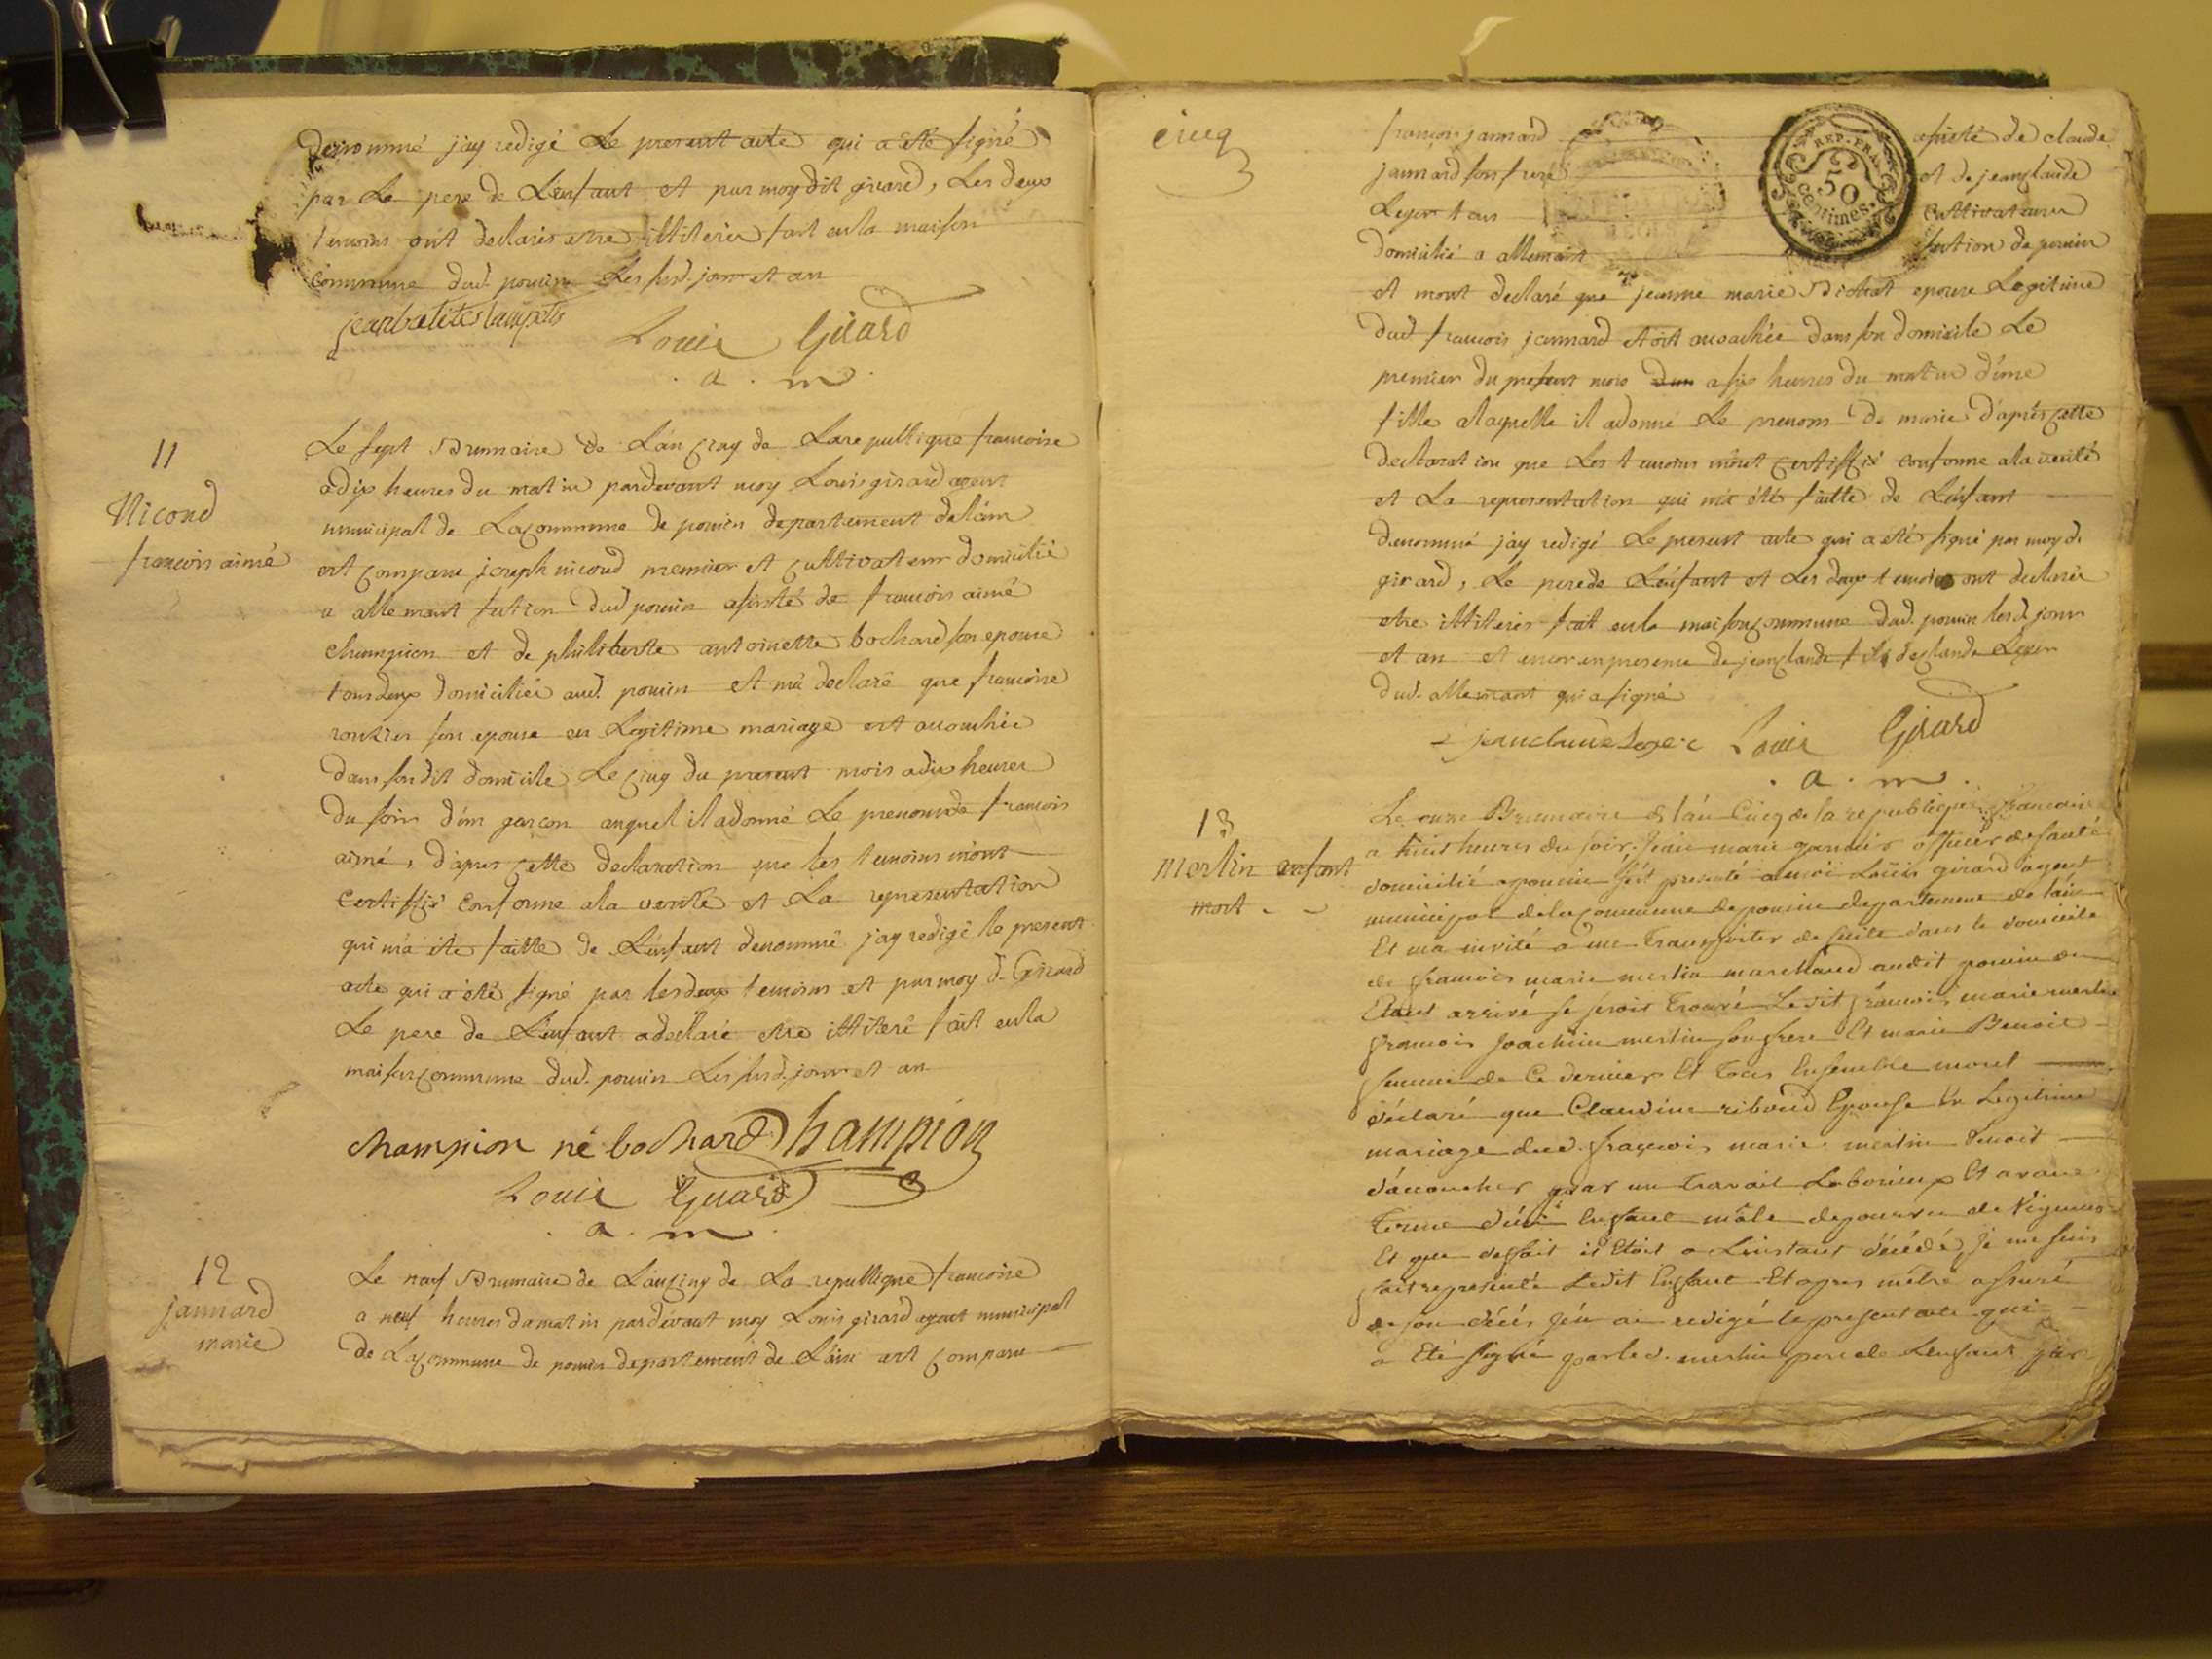 denommé j'ay redigé Le present acte qui a été signé
par Le pere de L'enfant et par moy dit girard, Les deux
temoins ont declarés etre illiterés fait en la maison
commune dud. poncin Les susd. jour et an
Louis Girard
a. m.
11
Nicoud
francois aimé
Le sept Brumaire de L'an cinq de La republique francoise
a dix heures du matin pardevant moy Louis girard agent
municipal de La commune de poncin departement de l'ain
est comparu joseph nicoud premier et cultivateur domicilié
a allemant section dud poncin assisté de francois aimé
champion et de philiberte antoinette bochard son epouse
tous deux domiciliés aud. poncin et m'a declaré que francoise
son epouse en Legitime mariage est accouchée
dans son dit domicile Le cinq du present mois a dix heures
du soir d'un garcon auquel il a donné Le prenom de francois
aimé, d'apres cette declaration que les temoins m'ont
certiffié conforme a la verité et La representation
qui m'a été faitte de L'enfant denommé j'ay redigé le present
acte qui a été signé par les deux temoins et par moy d. Girard
Le pere de L'enfant a declaré etre illiteré fait en la
maison commune dud. poncin Les susd. jour et an
champion né bochard Champion
Louis Girard
a. m.
12
jannard
marie
Le neuf Brumaire de L'an cinq de La republique francoise
a neuf heures du matin pardevant moy Louis girard agent municipal
de La commune de poncin departement de L'ain est comparu
cinq
francois jannard assisté de claude
jannard son frere et de jean claude
Leger tous cultivateurs
domicilié a allemant section de poncin
et m'ont declaré que jeanne marie Bichat epouse Legitime
dud francois jannard etoit accouchée dans son domicile Le
premier du present mois a six heures du matin d'une
fille a laquelle il a donné Le prenom de marie d'aprés cette
declaration que Les temoins m'ont certiffié conforme a la verité
et La representation qui m'a été faitte de L'enfant
denommé j'ay redigé Le present acte qui a été signé par moy d.
girard, Le pere de L'enfant et Les deux temoins ont declarés
etre illiterés fait en la maison commune dud. poncin les d. jour
et an et encor en presence de jean claude fils de claude Leger
dud. allemant qui a signé
jean claude Leger Louis Girard
a. m.
13
merlin enfant
mort
Le onze Brumaire de l'an Cinq de la republique francaise
a huit heures du soir. Jean marie garnier officier de santé
domicilié a poncin s'est presenté a moi Louis girard agent
municipal de la commune de poncin departement de l'ain
Et m'a invité a me transporter de suite dans le domicile
de francois marie merlin marchand audit poncin ou
Etant arrivé se serois trouvé Ledit francois marie merlin
francois joachim merlin son frere Et marie Benoit
femme de Ce dernier Et tous Ensemble m'ont
declaré que Claudine riboud Epouse En Legitime
mariage dud. francois marie merlin venoit
d'accoucher par un travail Laborieux Et avant
terme d'un Enfant mâle depourvu de Vigueur
Et que de fait il Etoit a L'instant décédé, je me suis
fait representé Ledit Enfant Et apres m'être assuré
de son décés j'en ai redigé le present acte qui
a Eté signé par led. merlin pere de L'enfant par